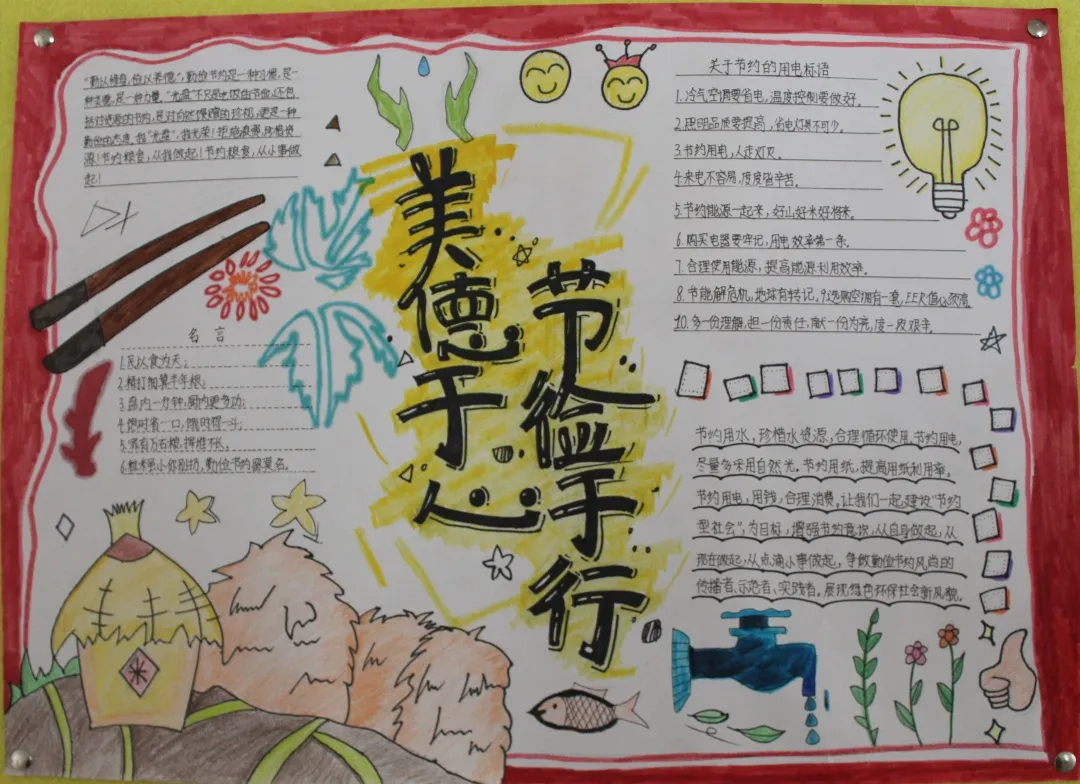 "勤以修身,俭以养德",勤俭节约是一种习惯,是一
种美德,是一种力量。"光盘"不只是吃饭的节俭,还包
括对资源的节约,是对自然馈赠的珍视,更是一种
勤俭的态度。我"光盘",我光荣!拒绝浪费,珍惜资
源!节约粮食,从我做起!节约粮食,从小事做
起!
名言
1.民以食为天;
2.精打细算半年粮;
3.盘内一分钟,厨内更多功;
4.饱时省一口,饿时得一斗;
5.家有万石粮,挥维不长。
6.粒米虽小你别扔,勤俭节约留美名。
美德于人
节俭于行
关于节约的用电标语
1.冷气空调要省电,温度控制要做好。
2.照明品质要提高,省电灯具不可少。
3.节约用电,人走灯灭。
4.来电不容易,度度皆辛苦。
5.节约能源一起来,好山好水好将来。
6.购买电器要牢记,用电效率第一条。
7.合理使用能源,提高能源利用效率。
8.节能解危机,地球有转记。9.选购空调有一套,EER值必须高
10.多一份理解,担一份责任,献一份为亮,度一段艰辛。
节约用水,珍惜水资源,合理循环使用。节约用电,
尽量多采用自然光。节约用纸,提高用纸利用率。
节约用电,用钱,合理消费。让我们一起建设"节约
型社会",为目标,增强节约意识,从自身做起,从
现在做起,从点滴小事做起,争做勤俭节约风尚的
传播者、示范者、实践者。展现绿色环保社会新风貌。